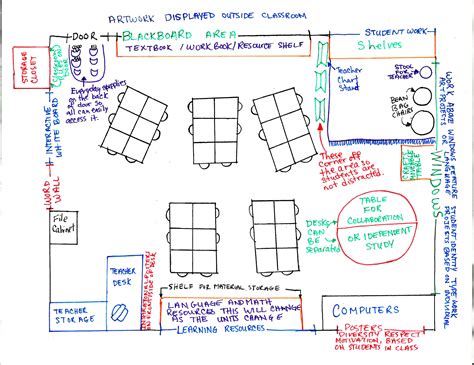 ARTWORK DISPLAYED OUTSIDE CLASSROOM
DOOR
BLACKBOARD AREA
TEXTBOOK / WORKBOOK / RESOURCE SHELF
STUDENT WORK
Shelves
STORAGE
CLOSET
DOOR
Everyday supplies
on the back
door so all
can easily
access it.
Teacher
Chart
Stand
STOOL
FOR
TEACHER
BEAN
BAG
CHAIRS
INTERACTIVE
WHITE BOARD
WORD
WALL
These
corner off
the area so
students are
not distracted.
WINDOWS
WORK ABOVE WINDOWS FEATURE STUDENT IDENTITY TYPE WORK
ART PROJECTS OR LANGUAGE PROJECTS BASED ON INDIVIDUAL
File
Cabinet
DESKS
CAN BE
SEPARATED
TABLE
FOR
COLLABORATION
OR INDEPENDENT
STUDY
TEACHER
DESK
INSPIRATIONAL POSTERS
ON FRONTSIDE OF DESK
TEACHER
STORAGE
SHELF FOR MATERIAL STORAGE
LANGUAGE AND MATH
RESOURCES THIS WILL CHANGE
AS THE UNITS CHANGE
LEARNING RESOURCES
COMPUTERS
POSTERS
DIVERSITY RESPECT
MOTIVATION, BASED
ON STUDENTS IN CLASS